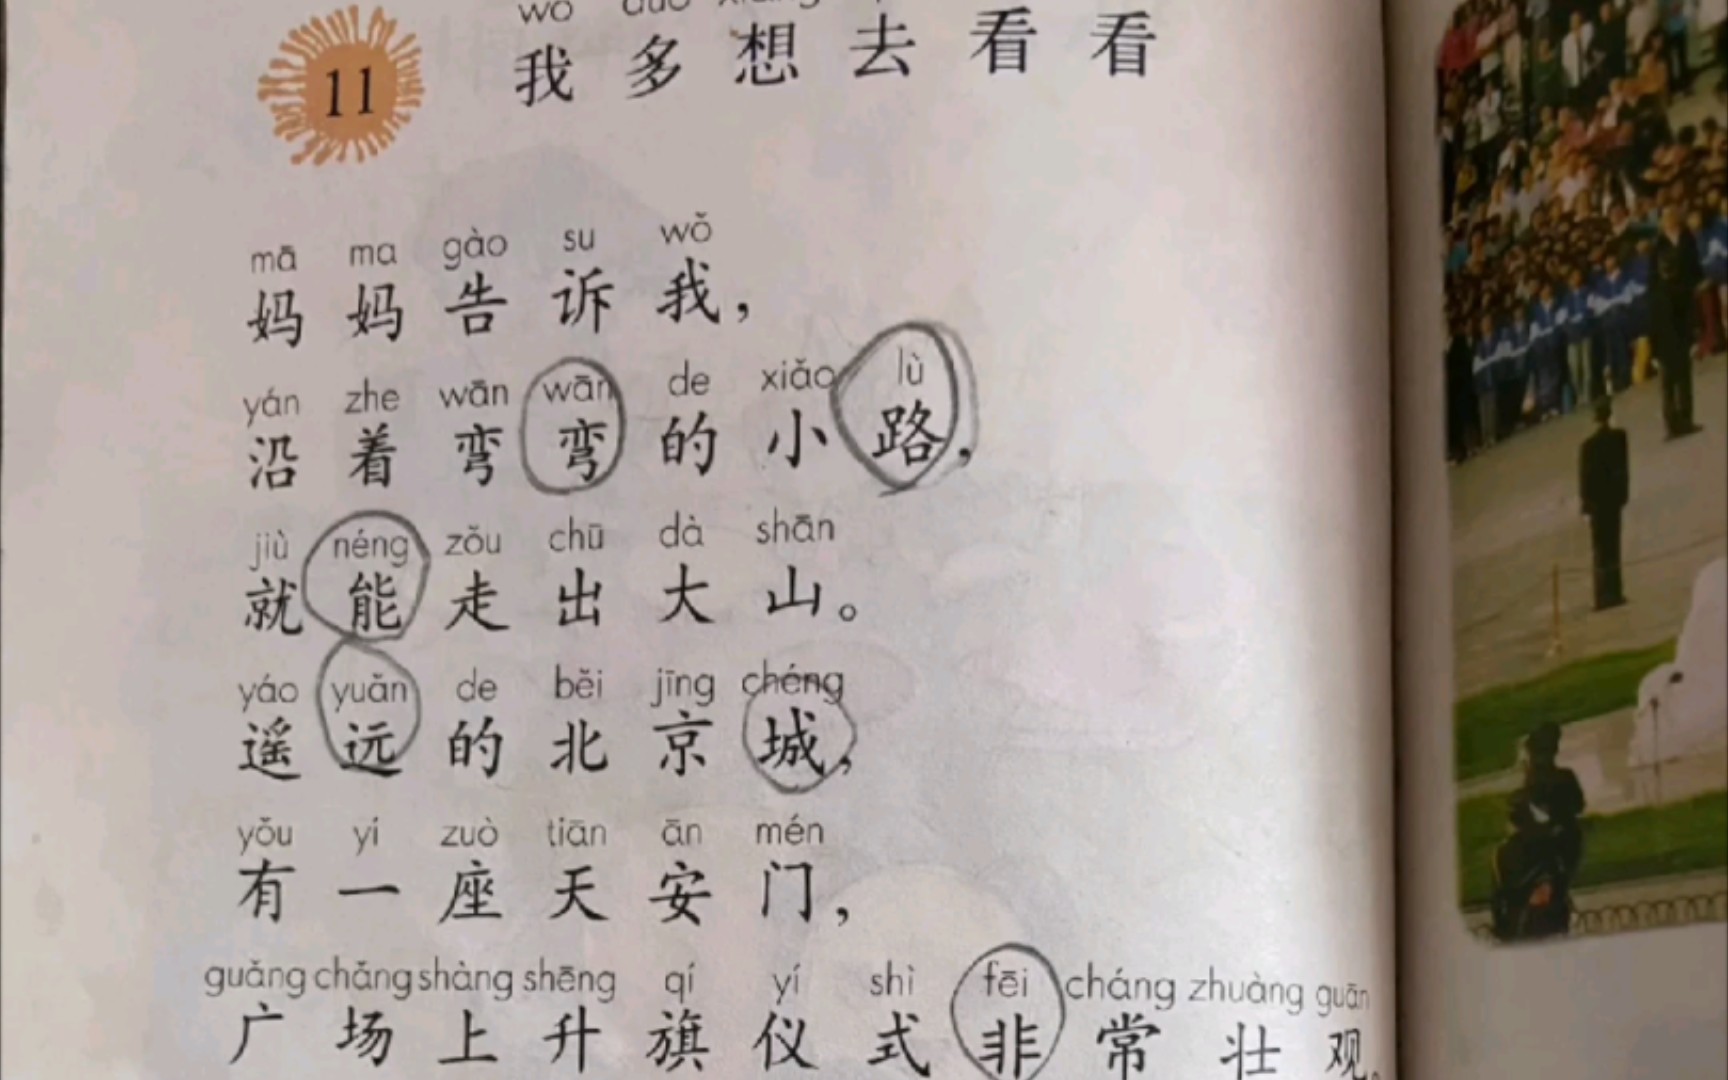 11
我多想去看看
mā ma gào su wǒ
妈妈告诉我，
yán zhe wān wān de xiǎo lù
沿着弯弯的小路，
jiù néng zǒu chū dà shān
就能走出大山。
yáo yuǎn de běi jīng chéng
遥远的北京城，
yǒu yí zuò tiān ān mén
有一座天安门，
guǎng chǎng shàng shēng qí yí shì fēi cháng zhuàng guān
广场上升旗仪式非常壮观。